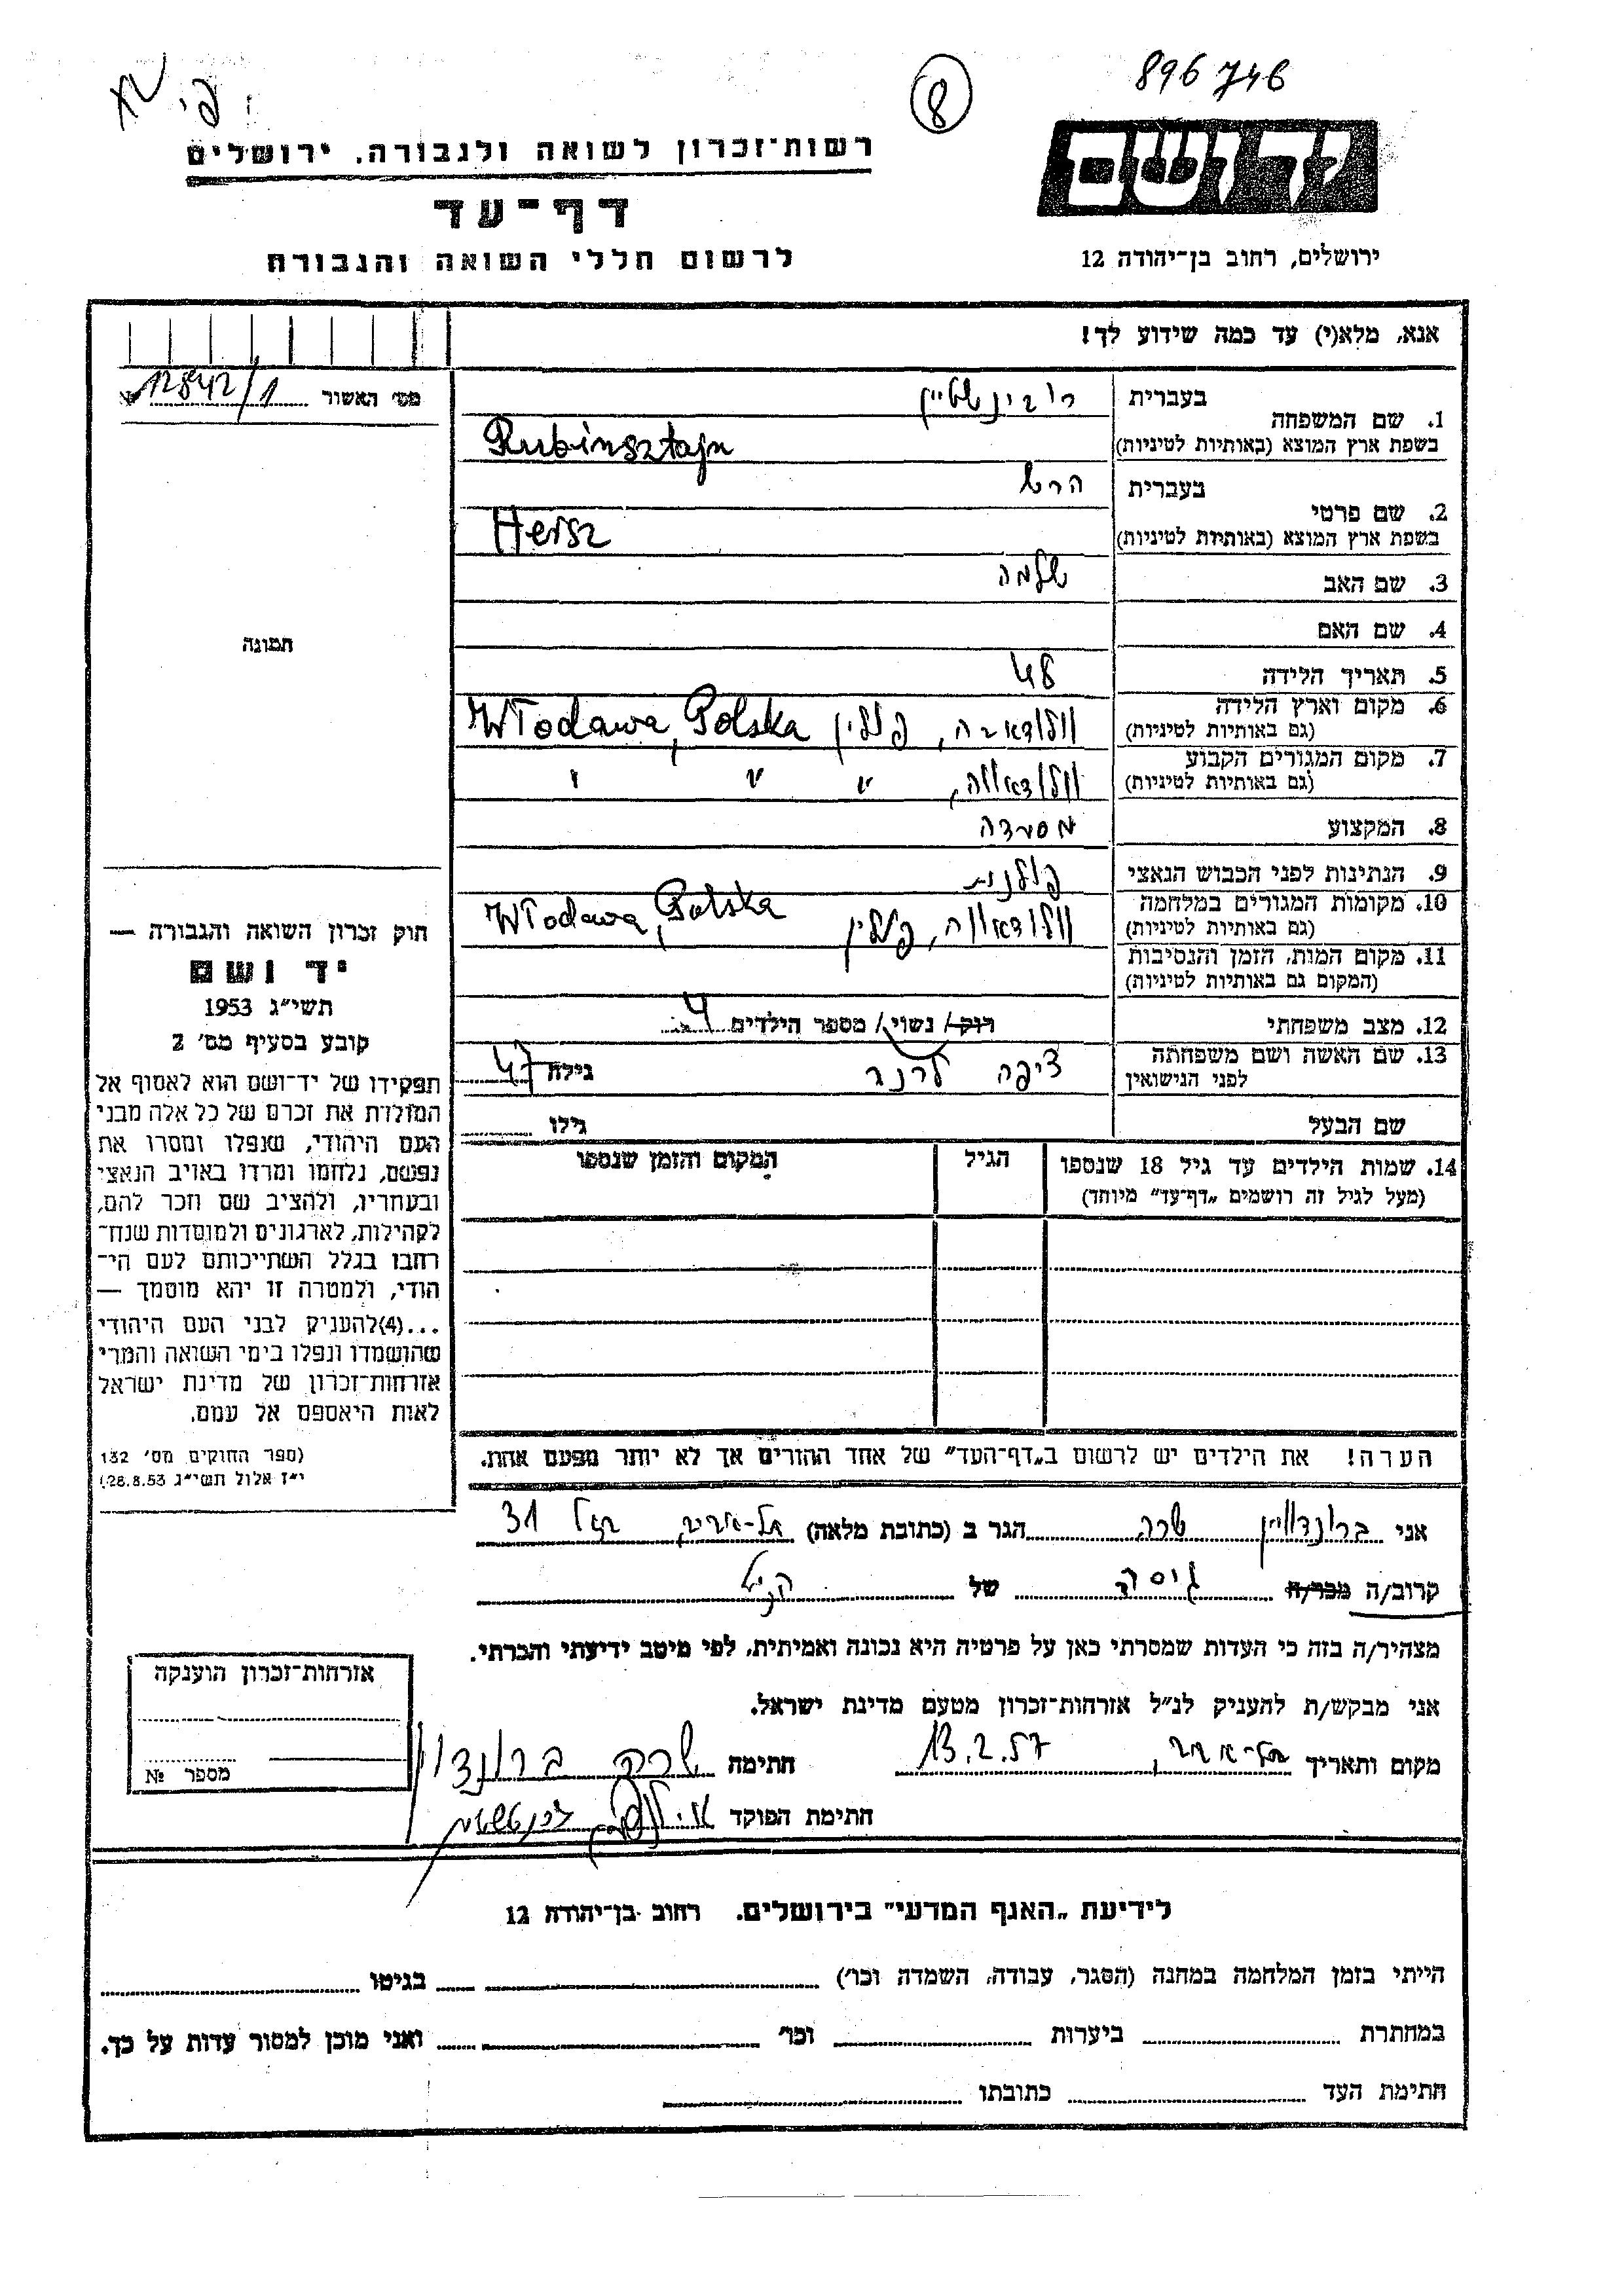 896746
8
יד ושם
רשות־זכרון לשואה ולגבורה. ירושלים
דף־עד
לרשום חללי השואה והגבורה
ירושלים, רחוב בן־יהודה 12
אנא, מלא(י) עד כמה שידוע לך!
מס׳ האשור 12842/1 №
1. שם המשפחה
בעברית רובינשטיין
בשפת ארץ המוצא (באותיות לטיניות) Rubinsztajn
2. שם פרטי
בעברית הרש
בשפת ארץ המוצא (באותיות לטיניות) Hersz
3. שם האב שלמה
4. שם האם
5. תאריך הלידה 48
6. מקום וארץ הלידה
(גם באותיות לטיניות) וולודאבה, פולין Włodawa, Polska
7. מקום המגורים הקבוע
(גם באותיות לטיניות) וולודאווה, " " "
8. המקצוע
9. הנתינות לפני הכבוש הנאצי פולנית
10. מקומות המגורים במלחמה
(גם באותיות לטיניות) וולודאווה, פולין Włodawa, Polska
11. מקום המות, הזמן והנסיבות
(המקום גם באותיות לטיניות)
12. מצב משפחתי רוק/ נשוי/ מספר הילדים 4
13. שם האשה ושם משפחתה
לפני הנישואין ציפה לרנר גילה 47
שם הבעל גילו
14. שמות הילדים עד גיל 18 שנספו
(מעל לגיל זה רושמים „דף־עד" מיוחד)
הגיל
המקום והזמן שנספו
הערה! את הילדים יש לרשום ב„דף־העד" של אחד ההורים אך לא יותר מפעם אחת.
תמונה
חוק זכרון השואה והגבורה —
יד ושם
תשי"ג 1953
קובע בסעיף מס׳ 2
תפקידו של יד־ושם הוא לאסוף אל
המולדת את זכרם של כל אלה מבני
העם היהודי, שנפלו ומסרו את
נפשם, נלחמו ומרדו באויב הנאצי
ובעוזריו, ולהציב שם וזכר להם,
לקהילות, לארגונים ולמוסדות שנח־
רבו בגלל השתייכותם לעם הי־
הודי, ולמטרה זו יהא מוסמך —
...(4)להעניק לבני העם היהודי
שהושמדו ונפלו בימי השואה והמרי
אזרחות־זכרון של מדינת ישראל
לאות היאספם אל עמם.
(ספר החוקים מס׳ 132
י"ז אלול תשי"ג 28.8.53)
אני ברונדוויין שרה הגר ב (כתובת מלאה) תל־אביב, 31
קרוב/ה מכר/ה גיסה של
מצהיר/ה בזה כי העדות שמסרתי כאן על פרטיה היא נכונה ואמיתית, לפי מיטב ידיעתי והכרתי.
אני מבקש/ת להעניק לנ"ל אזרחות־זכרון מטעם מדינת ישראל.
מקום ותאריך תל־אביב, 13.2.57 חתימה שרה ברונדוין
חתימת הפוקד
אזרחות־זכרון הוענקה
מספר №
לידיעת „האגף המדעי" בירושלים. רחוב בן־יהודה 12
הייתי בזמן המלחמה במחנה (הסגר, עבודה, השמדה וכו׳) בגיטו
במחתרת ביערות וכו׳ ואני מוכן למסור עדות על כך.
חתימת העד כתובתו